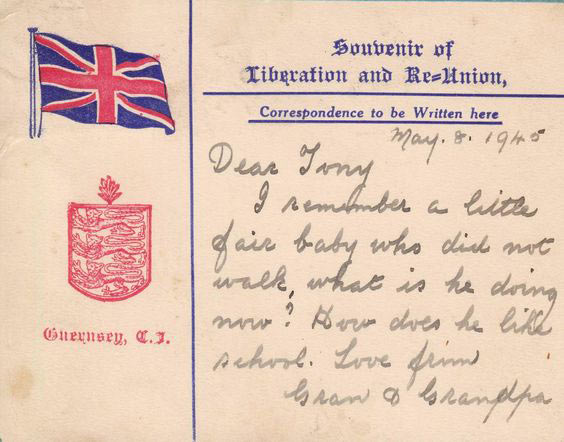 Souvenir of
Liberation and Re-Union,
Correspondence to be Written here
May. 8. 1945
Dear Tony
I remember a little
fair baby who did not
walk, what is he doing
now? How does he like
school. Love from
Gran & Grandpa
Guernsey, C.I.